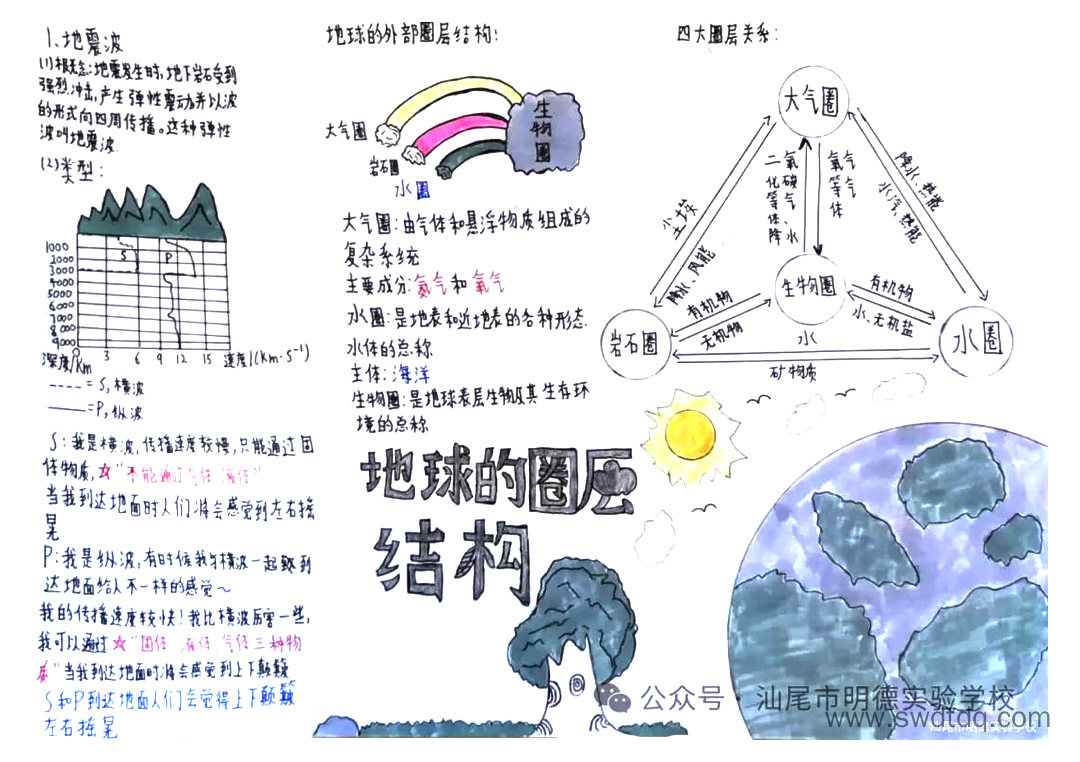 1、地震波
(1)概念:地震发生时,地下岩石受到
强烈冲击,产生弹性震动并以波
的形式向四周传播。这种弹性
波叫地震波.
(2)类型:
S
P
1000
2000
3000
4000
5000
6000
7000
8000
9000
0
3
6
9
12
15
深度/km
速度/(km·s⁻¹)
----=S,横波
——=P,纵波
S:我是横波,传播速度较慢,只能通过固
体物质,☆"不能通过气体 液体"
当我到达地面时人们将会感觉到左右摇
晃
P:我是纵波,有时候我与横波一起
达地面给人不一样的感觉~
我的传播速度较快!我比横波厉害一些,
我可以通过☆"固体 液体 气体三种物
质"当我到达地面时将会感觉到上下颠簸
S和P到达地面人们会觉得上下颠簸
左右摇晃
地球的外部圈层结构:
大气圈
岩石圈
水圈
生物圈
大气圈:由气体和悬浮物质组成的
复杂系统
主要成分:氮气和氧气
水圈:是地表和近地表的各种形态
水体的总称
主体:海洋
生物圈:是地球表层生物及其生存环
境的总称
地球的圈层
结构
四大圈层关系:
大气圈
二氧
化碳
等气
体、
降水
氧气
等气
体
尘埃
降水、风能
降水、热能
水汽、热能
生物圈
有机物
无机物
有机物
水、无机盐
岩石圈
水圈
水
矿物质
公众号·汕尾市明德实验学校
www.swdtdq.com